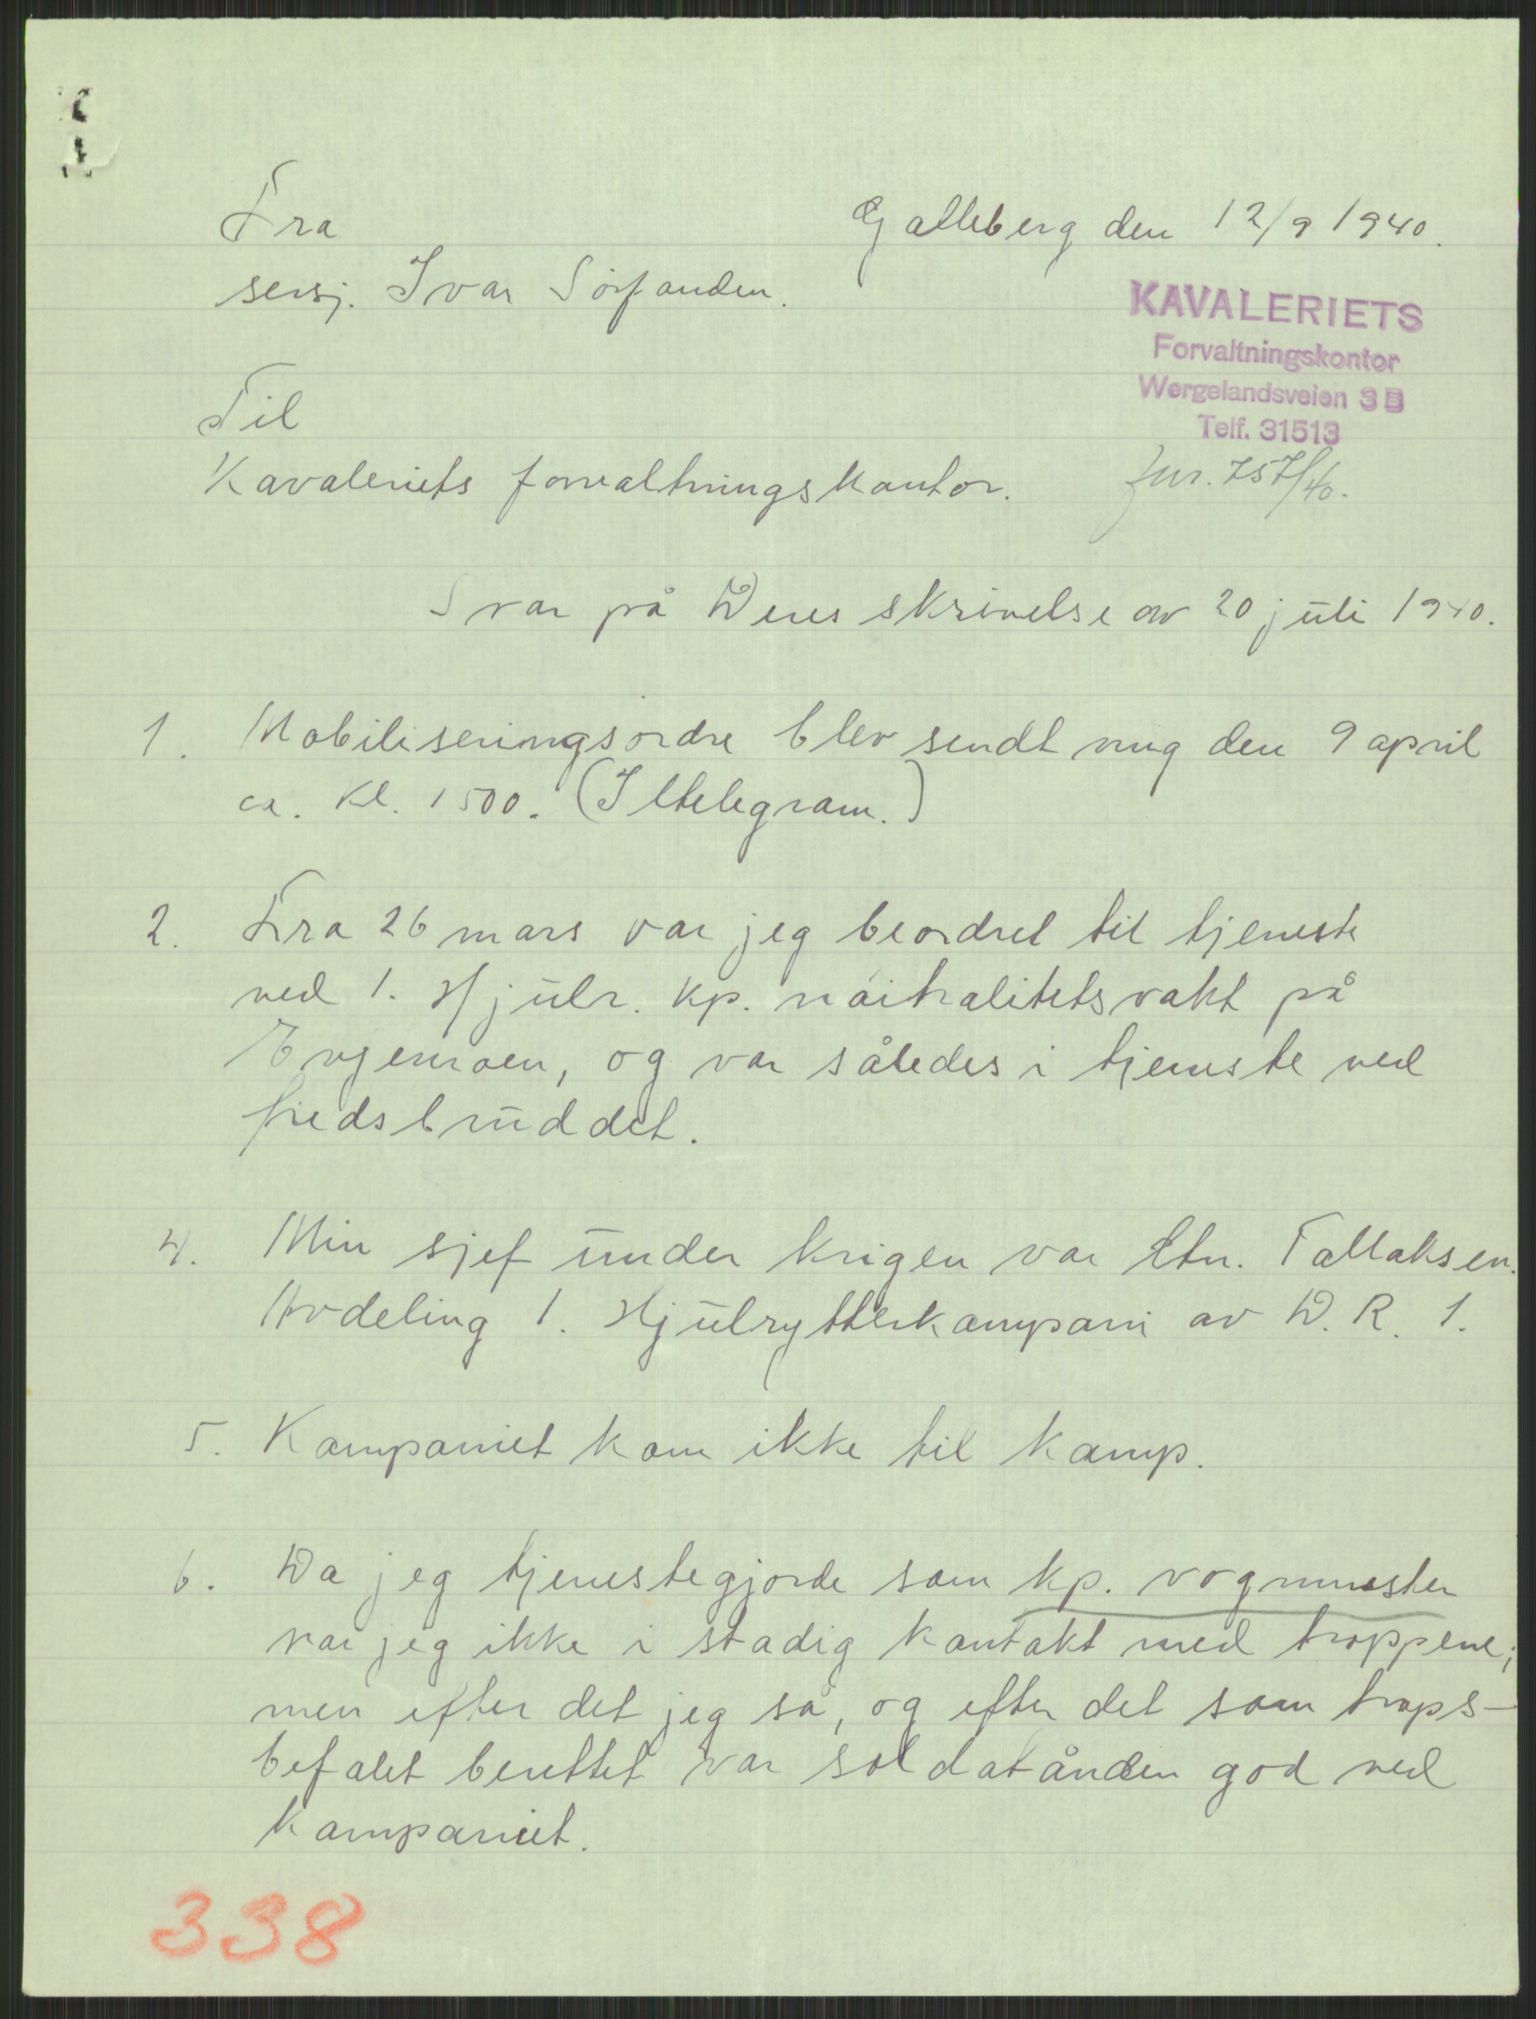 Fra
Galleberg den 12/9 1940.
sersj. Ivar Sörfonden.
KAVALERIETS
Forvaltningskontor
Wergelandsveien 3B
Telf. 31513
Til
Kavaleriets forvaltningskontor.
Jnr. 757/40.
Svar på Deres skrivelse av 20 juli 1940.
1. Mobiliseringsordre blev sendt mig den 9 april
ca. kl. 1500. (Iltelegram.)
2. Fra 26 mars var jeg beordret til tjeneste
ved 1. Hjulr. kp. nöitralitetsvakt på
Evjemoen, og var således i tjeneste ved
fredsbruddet.
4. Min sjef under krigen var ltn. Tallaksen.
Avdeling 1. Hjulrytterkompani av D. R. 1.
5. Kompaniet kom ikke til kamp.
6. Da jeg tjenestegjorde som kp. vognmester
var jeg ikke i stadig kontakt med troppene;
men efter det jeg så, og efter det som trops-
befalet berettet var soldatånden god ved
kompaniet.
338